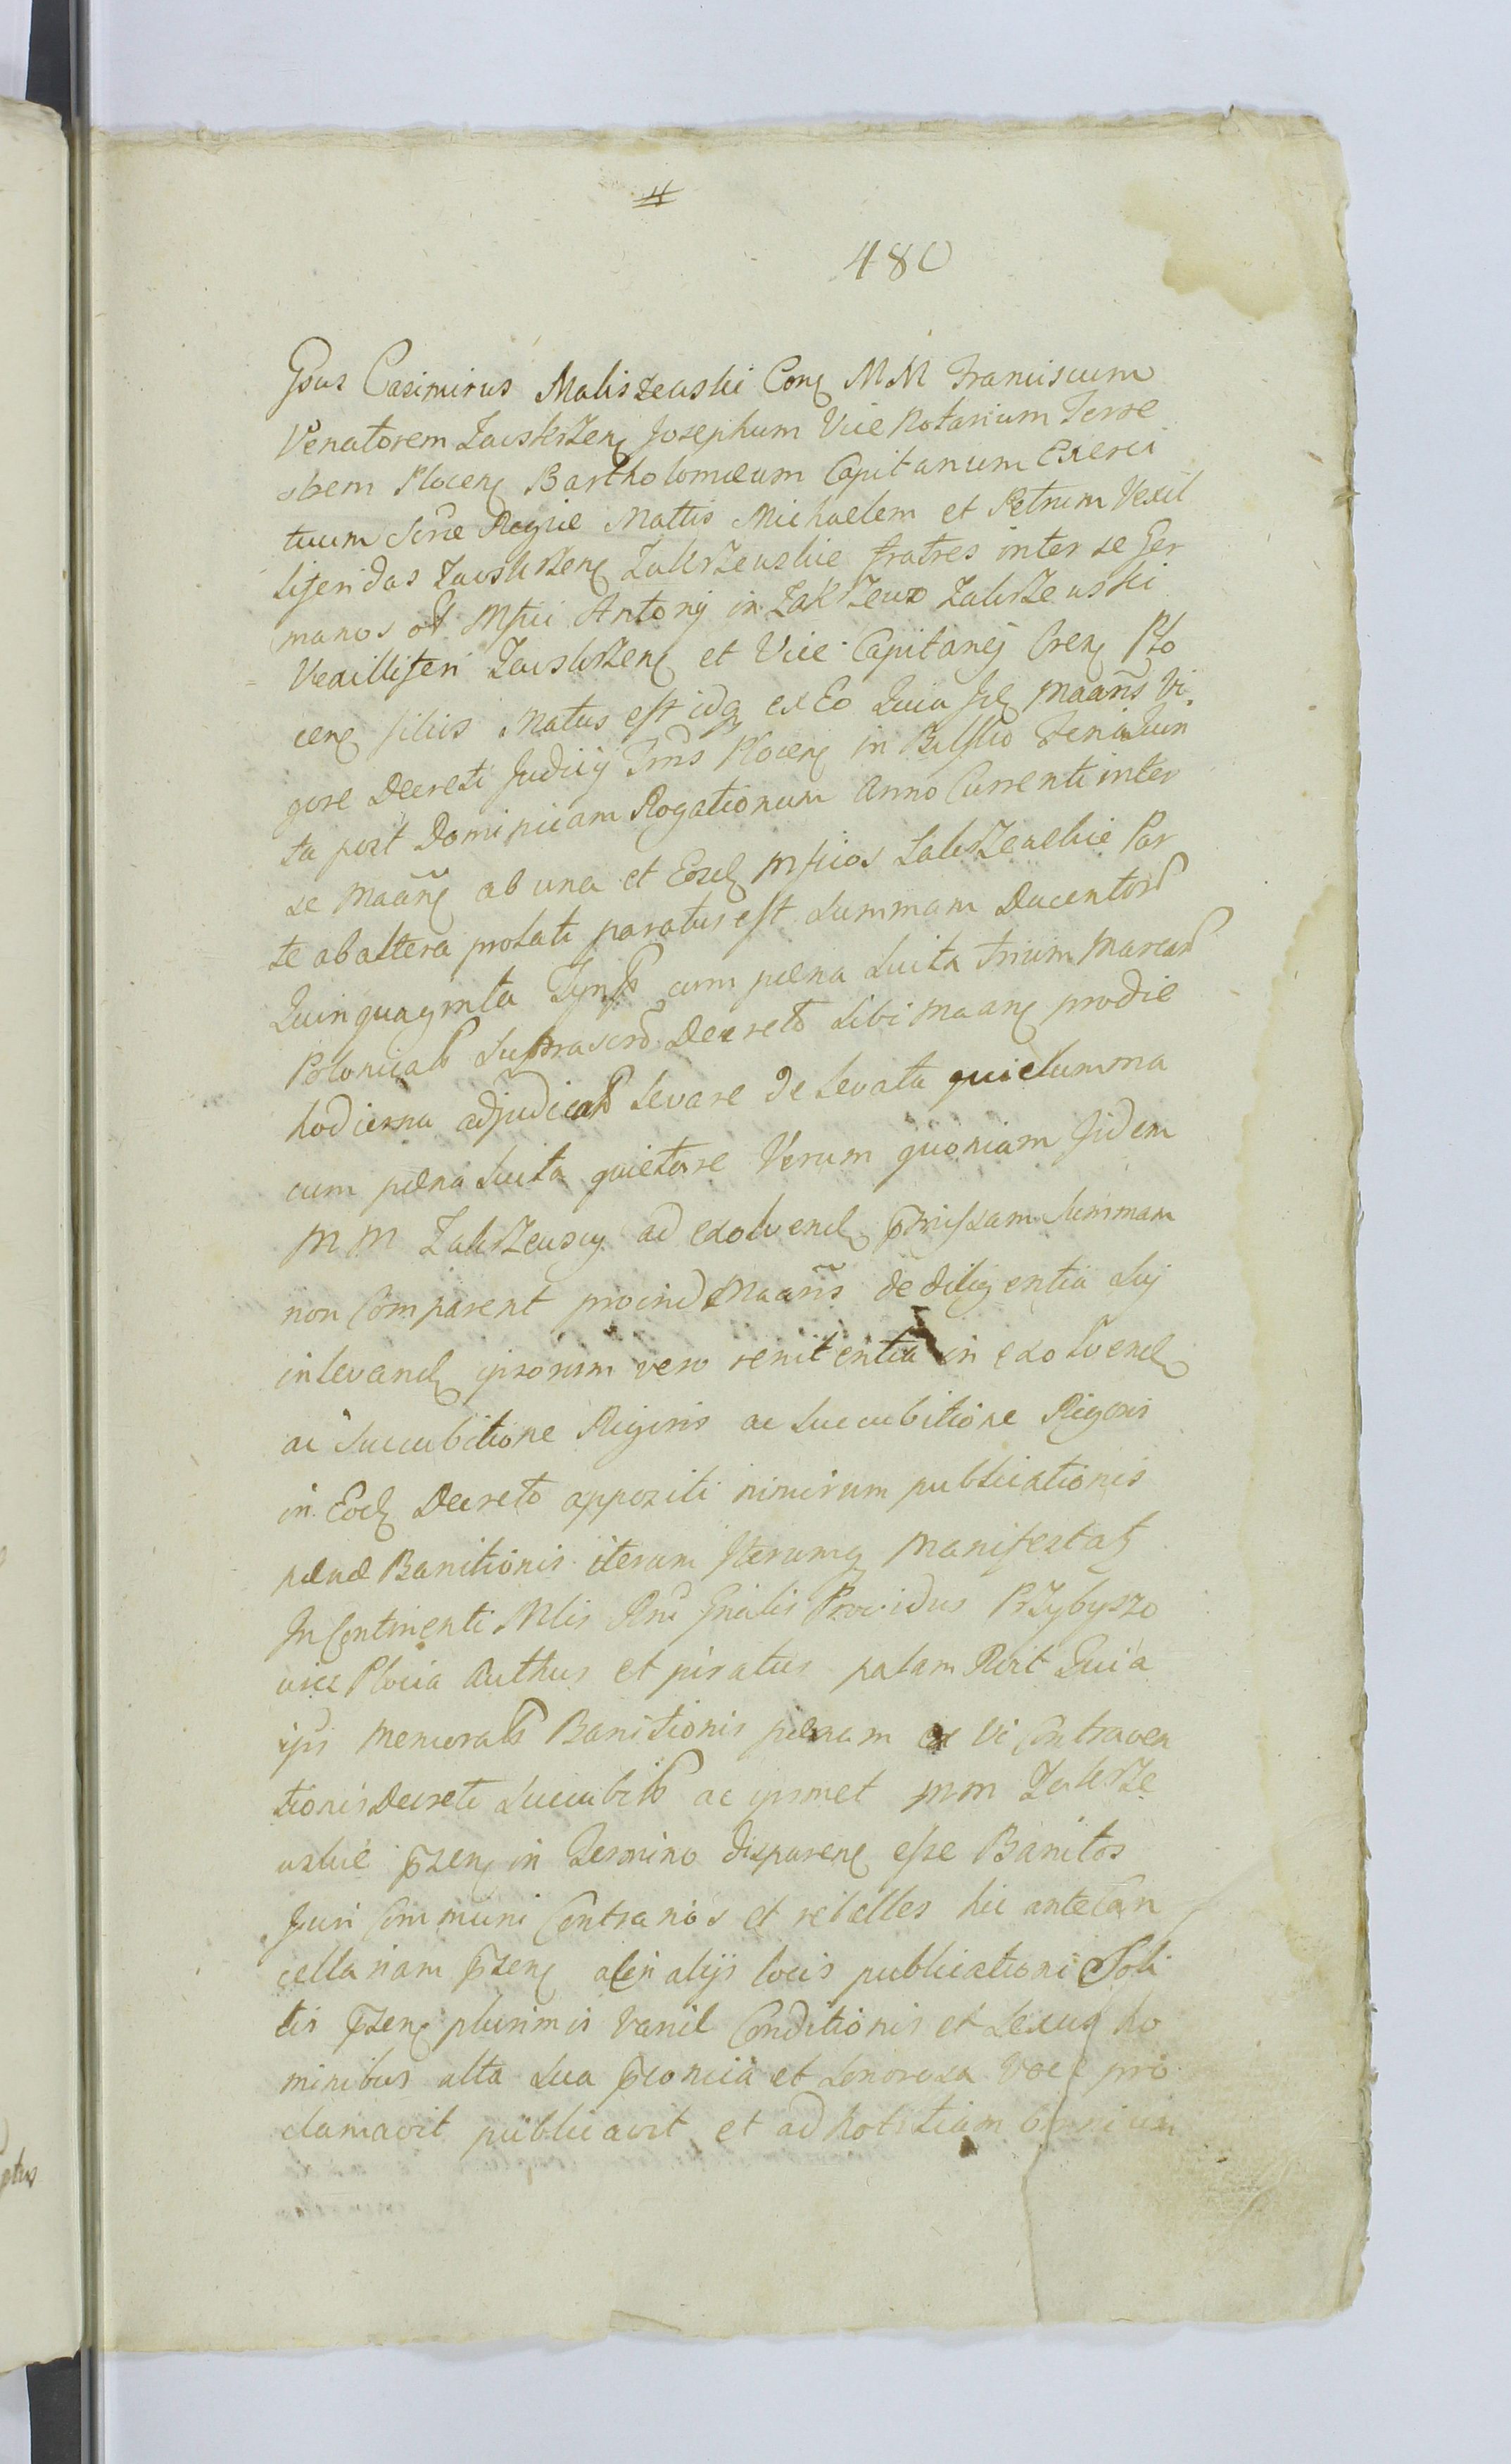 #
480
Gsus Casimirus Maliszewski Conq MM Franciscum
Venatorem Zawskrzenq Josephum Vice Notarium Terre
strem Plocenq Bartholomæum Capitanum Exerci
tuum Sacræ Regiæ Mattis Michaelem et Petrum Vexil
liferidas Zawskrzenq Zakrzewskie fratres inter se Ger
manos olf Mfici Antonij in Zakrzewo Zakrzewski
Vexilliferi Zawskrzenq et Vice Capitanej Crenq Plo
cenq filios Matus est idq ex Eo Quia Jpse Maans Vi
gore Decreti Judicij Trris Plocenq in Bielsko Feria Quin
ta post Dominicam Rogationum Anno Currenti inter
se Maanq ab una et Eosdq Mficos Zakrzewskie Par
te ab altera prolati paratus est Summam Ducentorũ
Quinquaginta Tymph cum pæna Luita trium Marcarũ
Polonicalũ Suprascrõ Decreto Sibi Maanq prodie
hodierna adjudicatã Levare de Levata quie Summa
cum pæna Luita quietare Verum quoniam Jidem
MM Zakrzewscy ad exolvendq præmissam Summam
non Comparent proinde Maans de diligentia Sui
in levandq ipsorum vero renitentia in exolvendq
ac Succubitione Rigoris ac Succubitione Rigoris
in Eodq Decreto appositi nimirum publicationis
pænæ Banitionis iterum Jterumq Manifestatq
In Continenti Mlis Rni Gnalis Providus Przybyszo
wicz Plocia Authus et juratus palam Rcit Quia
ipse memoratã Banitionis pænam ex Vi Contraven
tionis Decreti Succubitã ac ipsmet MM Zakrze
wskie pñzenq in Termino disparenq esse Banitos
Juri Communi Contrarios et rebelles hic ante Can
cellariam pñzenq ac in alijs locis publicationi Soli
tis pñzenq plurimis Variæ Conditionis et Sexusq ho
minibus alta Sua præconica et Sonorosa Voce pro
clamavit publicavit et ad Notitiam omnium